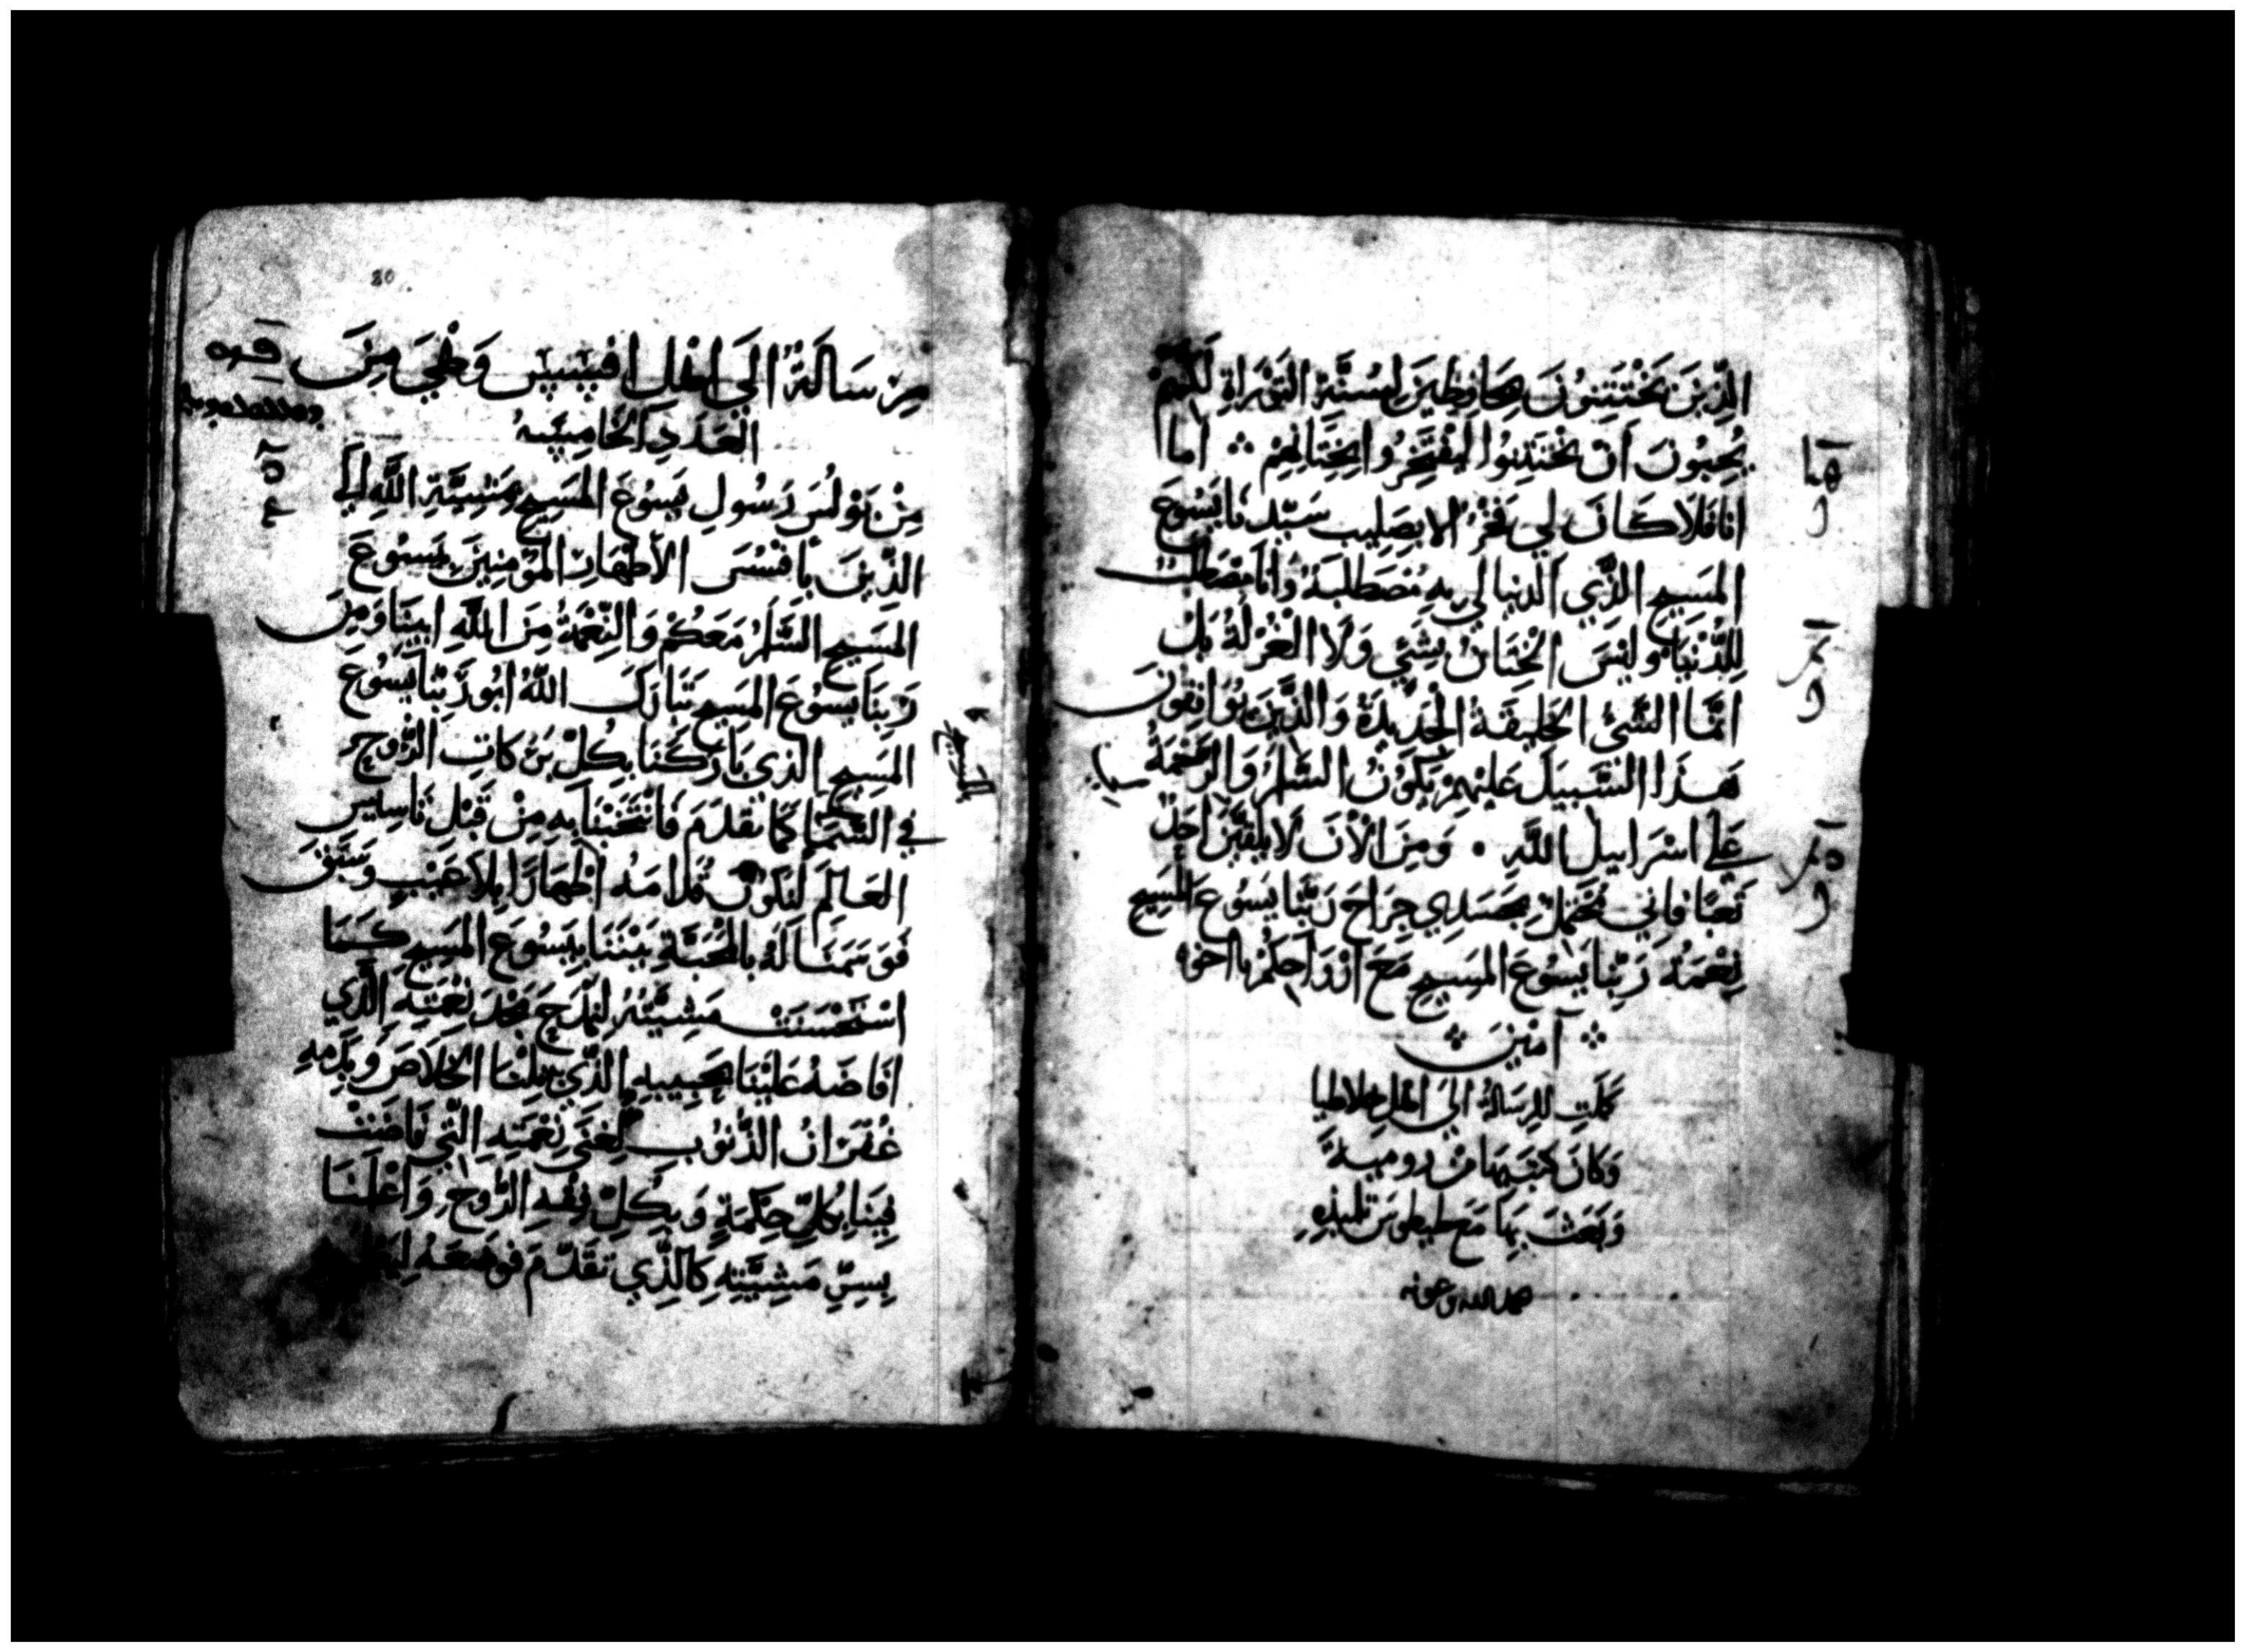 الذِّينَ يَخْتَتِنُونَ بِحَافِظِينَ لِسُنَّةِ التَوْرَاةِ لَكِنَّهُمْ
يُحِبُونَ اَنْ تَخْتَتِنُوا لِيَفْتَخِرُوا بِخِتَانِهِمْ ܀ اما
انا فَلَا كَانَ لِي فَخْرٌ الا بِصَلِيب سَيّدنَا يَسُوْعَ
المَسِيحِ الذَّي الدنيا لي بِهِ مُصَطَلبَةٌ وَانَا مُصْطَلبٌ
لِلدُّنْيَا وليْسَ الْخِتَانُ بِشَئِي وَلَا الْغُرْلَةُ بَلْ
انَّمَا الشَّئُ الخَلِيقَةُ الجَدِيْدَةُ وَالذَّينَ يُوَافِقُونَ
هَذَا السَّبِيلَ عَلَيْهِمْ يَكُونُ السَّلَامُ وَالرَّحْمَةُ
عَلَى اسْرَايِيلَ اللَّهِ . وَمِنَ الأَنَ لَا يُلْقِيَنَّ احَدٌ
تَعَبًا فَاني مُحْتَمِلٌ بِجَسَدِي جِرَاحَ رَبِّنَا يَسُوعَ المَسِيحِ
نِعْمَةُ رَبِّنَا يَسُوْعَ المَسِيحِ مَعَ ارْوَاحِكُمْ يا اخوه
܀ آمْينَ ܀
كَمُلَتِ الرِسَالَةُ الَى اهْلِ غلاطيا
وَكَانَ كَتَبَهَا مِنْ روميةَ
وَبَعَثَ بِهَا مَعَ طيطوسَ تلميذِهِ
بحمد الله وعونه
رِسَالَةٌ الَي اهْلِ افِيْسِيْس وَهْيَ مِنَ
العَدَدِ الخَامِسَة
مِنْ بَوْلُسَ رَسُولِ يَسُوْعَ المَسِيحِ بِمَشِيَّةِ اللَّهِ الَي
الذِّينَ بِافَسُسَ الأَطْهَارِ المُؤمِنِينَ بِيَسُوْعَ
المَسِيحِ السَّلَمُ مَعَكُمْ وَالنِّعْمَةُ مِنَ اللَّهِ ابِينَا وَمِنْ
رَبِّنَا يَسُوْعَ المَسِيحِ تَبَارَكَ اللهُ ابُو رَبِّنَا يَسُوْعَ
المَسِيحِ الذي بَارَكَنَا بِكُلِّ بَرَكَاتِ الرُّوحِ
فِي السَّمَا كَمَا تَقَدَمَ فَانْتَخَبْنَا بِهِ مِنْ قَبْلِ تَاسِيسِ
العَالَمِ لِنَكُونَ قُدَّامَهُ اطْهَارًا بِلَا عَيْب وَسَبَقَ
فَوَسَمَنَا لَهُ بِالمْحَبَّةِ بَيْنَنَا بِيَسُوْعَ المَسِيحِ كَمَا
اسْتَحْسَنَتْ مَشِيَّتُهُ لِيُمْدَحَ مَجْدُ نِعْمَتِهِ الَّذِي
افَاضَهُ عَلَيْنَا بِحَبِيبِهِ الذَّي بِهِ نِلْنَا الخَلَاصَ وَبِدَمِهِ
غُفْرَانُ الذُّنوُب لِغِنَي نِعْمَتِهِ التِّي فَاضَتْ
فِينَا بِكُلِّ حِكْمَةٍ وَبِكُلِّ فِهْمِ الرُّوحِ وَاعْلَمَنَا
بِسِرِّ مَشِيَّتِهِ كَالذِّي تَقَدَّمَ فَوَضَعَهُ